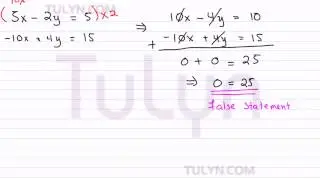 TULYN.COM
10x
(5x - 2y = 5) x 2 ⇒ 10x - 4y = 10
-10x + 4y = 15 + -10x + 4y = 15
0 + 0 = 25
⇒ 0 = 25
False Statement
TuLyn
TULYN.COM